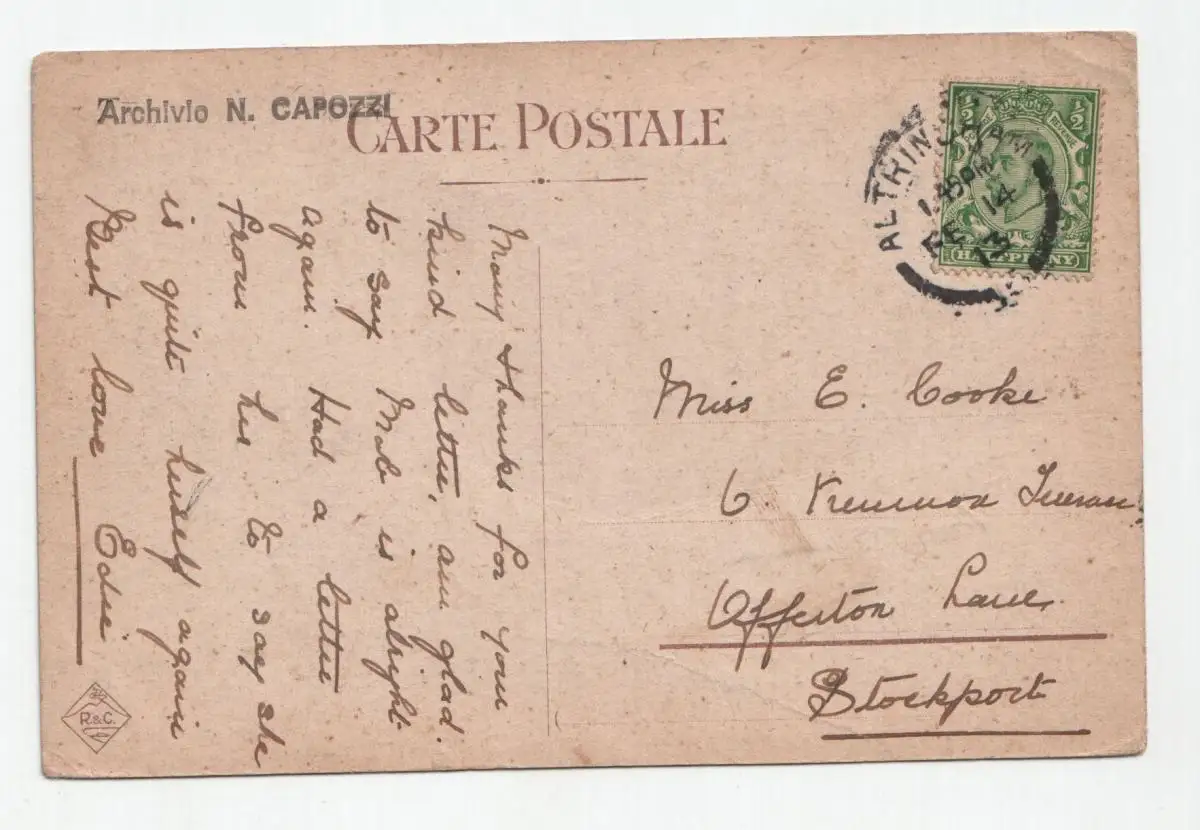 Archivio N. CAPOZZI
CARTE POSTALE
Many thanks for your
kind letter, am glad
to say Mab is alright
again. Had a letter
from her to say she
is quite herself again
Best love Edie
R.&C.
½ ½
REVENUE
HALFPENNY
ALTRINCHAM
1.45PM
FE 14
13
Miss E. Cooke
6.
Offerton Lane
Stockport